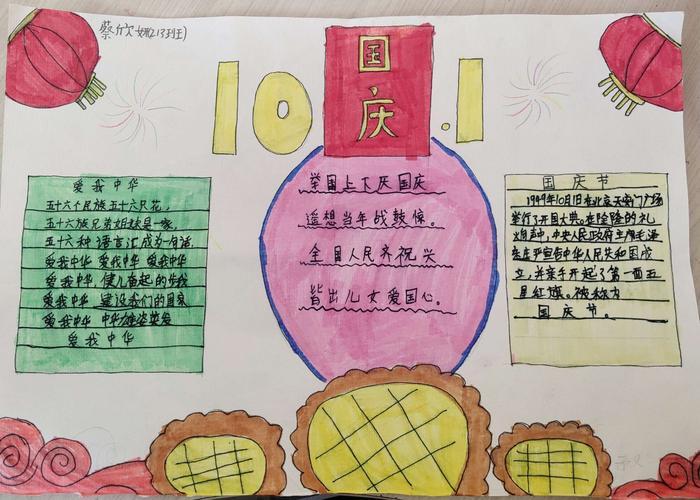 蔡欣娜(213班)
国庆
10.1
爱我中华
五十六个民族五十六只花,
五十六族兄弟姐妹是一家,
五十六种语言汇成一句话,
爱我中华 爱我中华 爱我中华
爱我中华 健儿奋起的步我
爱我中华 建设我们的国家
爱我中华 中华雄姿英发
爱我中华
举国上下庆国庆
遥想当年战鼓催。
全国人民齐祝兴
皆出儿女爱国心。
国庆节
1949年10月1日在北京天安门广场
举行了开国大典。在隆隆的礼
炮声中,中央人民政府主席毛泽
东庄严宣告中华人民共和国成
立,并亲手升起了第一面五
星红旗。被称为
国庆节。